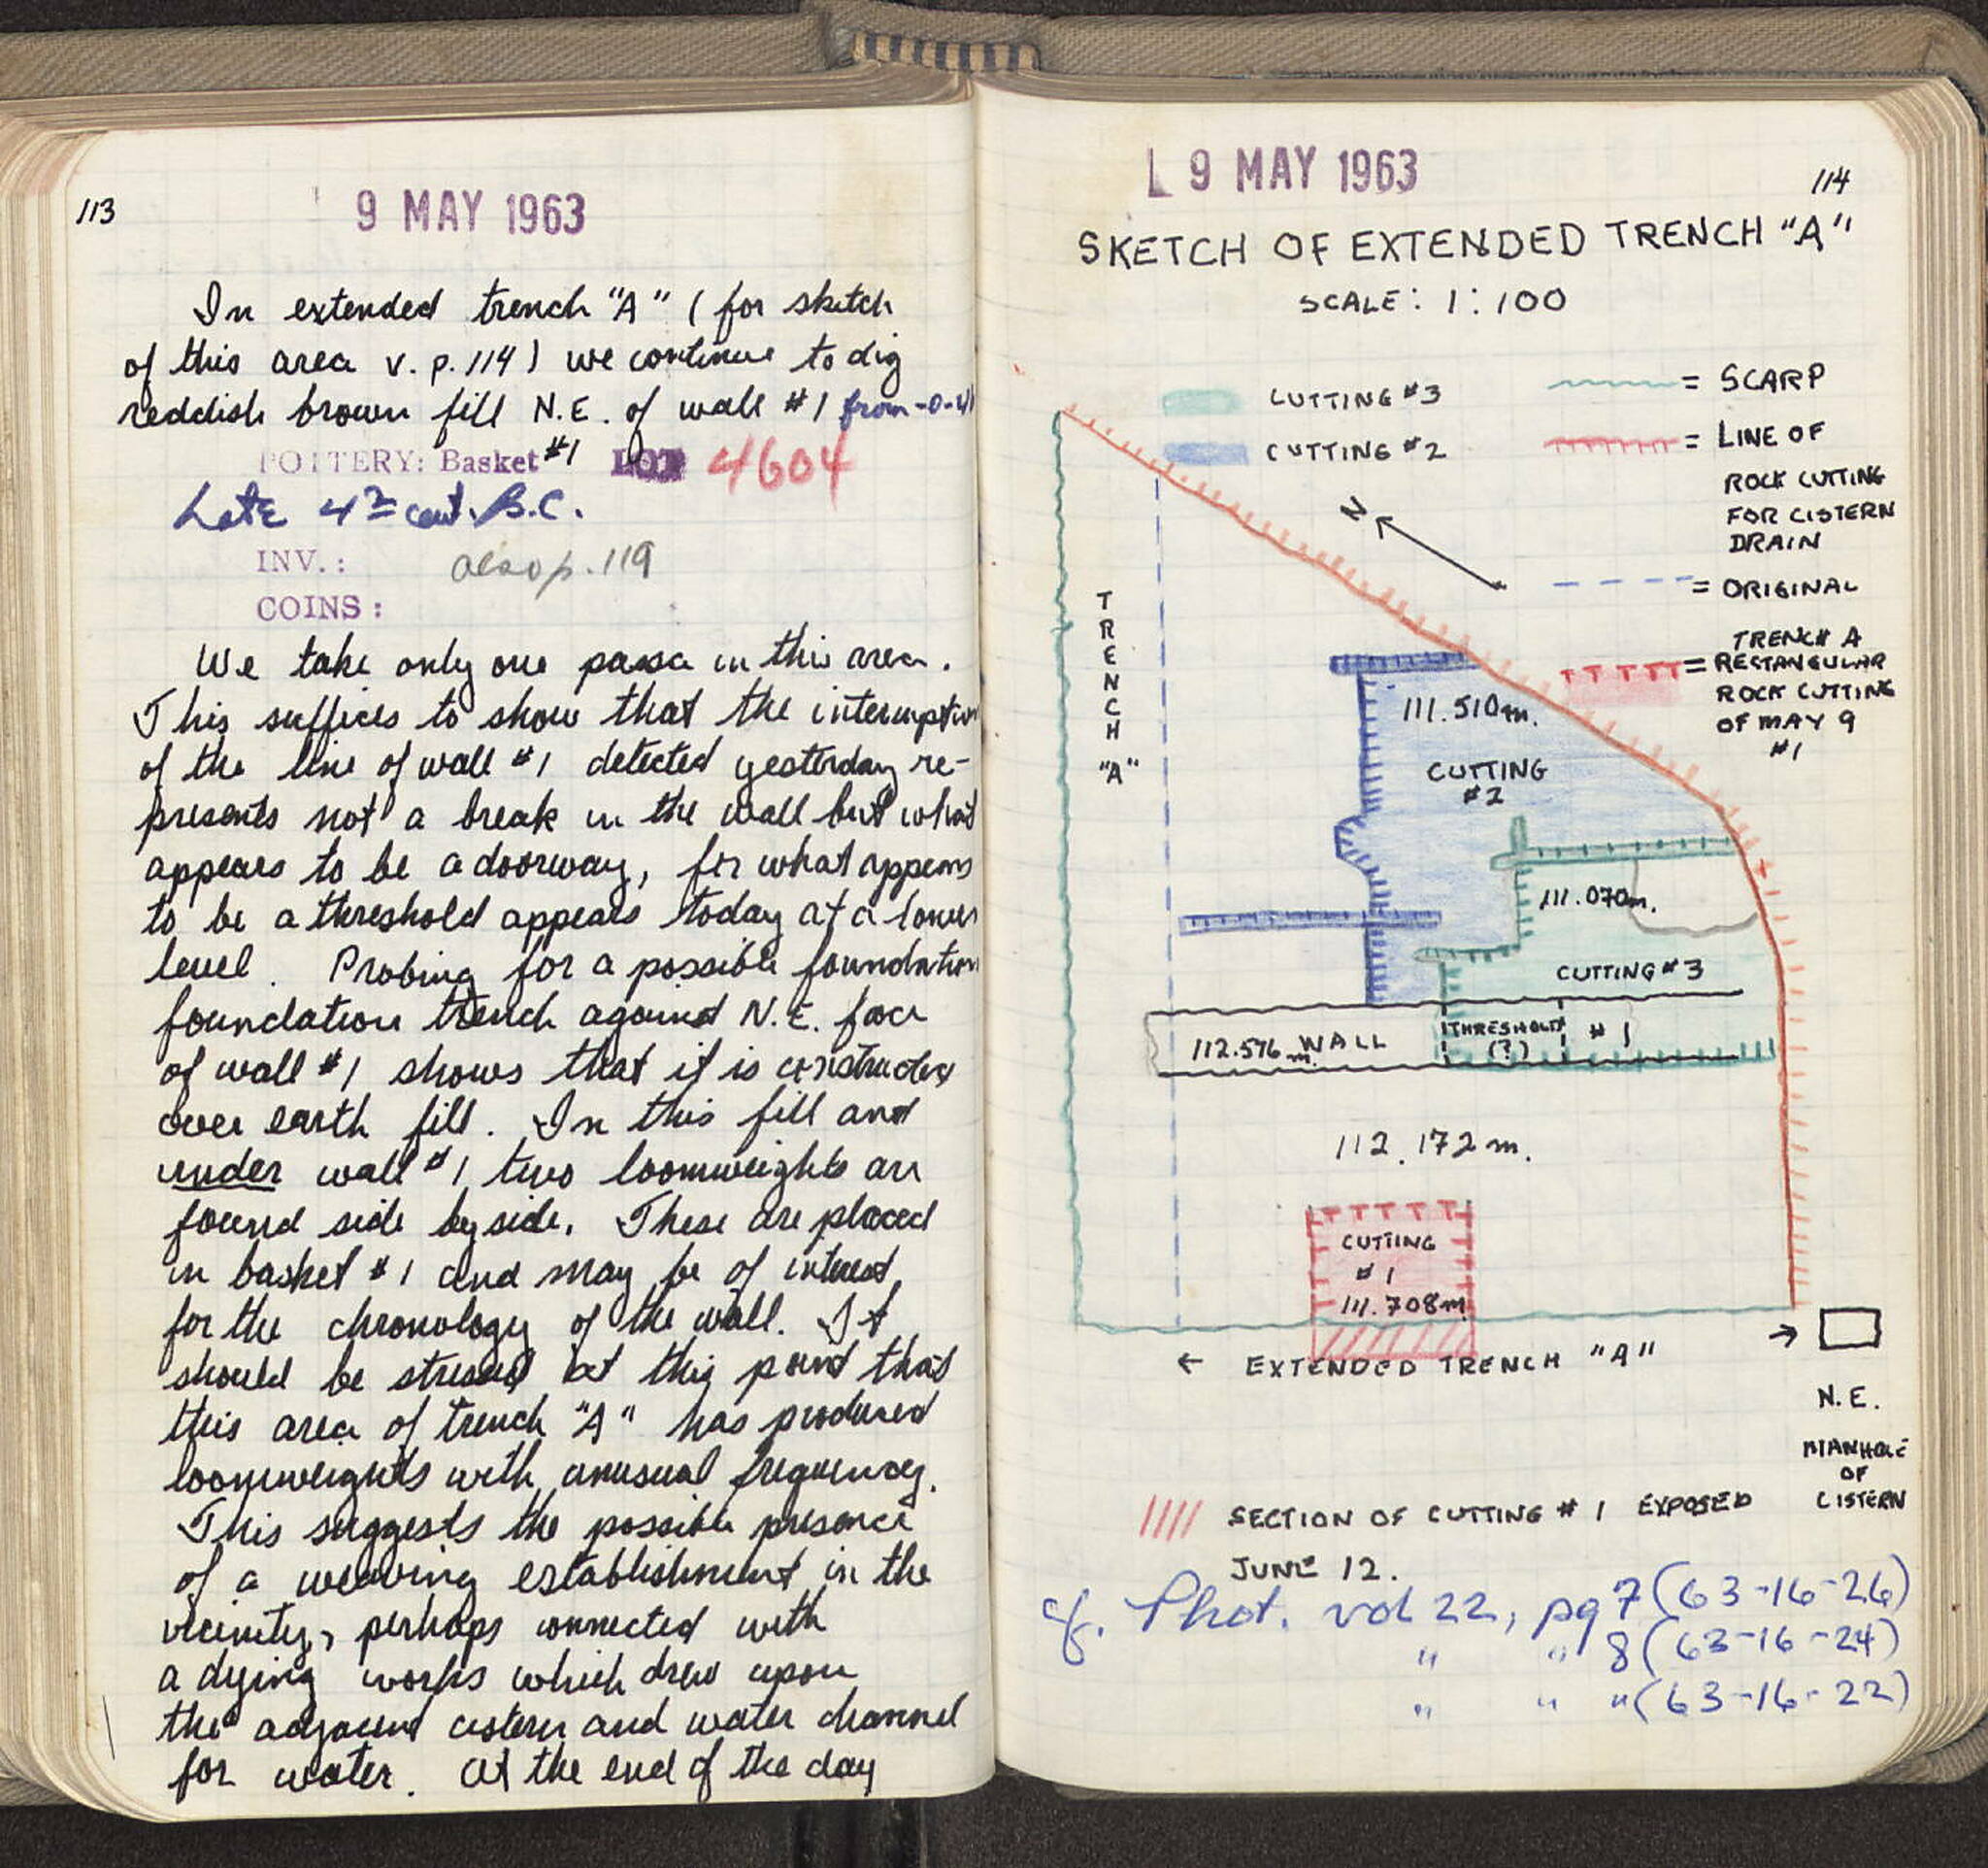 113
9 MAY 1963
In extended trench "A" (for sketch
of this area v. p. 114) we continue to dig
reddish brown fill N.E. of wall #1 from -0-41
POTTERY: Basket #1 LOT 4604
Late 4th cent. B.C.
INV.: also p. 119
COINS:
We take only one passa in this area.
This suffices to show that the interruption
of the line of wall #1 detected yesterday re-
presents not a break in the wall but what
appears to be a doorway, for what appears
to be a threshold appears today at a lower
level. Probing for a possible foundation
foundation trench against N.E. face
of wall #1 shows that it is constructed
over earth fill. In this fill and
under wall #1 two loomweights are
found side by side. These are placed
in basket #1 and may be of interest
for the chronology of the wall. It
should be stressed at this point that
this area of trench "A" has produced
loomweights with unusual frequency.
This suggests the possible presence
of a weaving establishment in the
vicinity, perhaps connected with
a dying works which drew upon
the adjacent cistern and water channel
for water. At the end of the day
9 MAY 1963
114
SKETCH OF EXTENDED TRENCH "A"
SCALE: 1:100
CUTTING #3
CUTTING #2
= SCARP
= LINE OF
ROCK CUTTING
FOR CISTERN
DRAIN
= ORIGINAL
TRENCH A
= RECTANGULAR
ROCK CUTTING
OF MAY 9
#1
N
TRENCH "A"
111.510m.
CUTTING
#2
111.070m.
CUTTING #3
112.576 m. WALL
THRESHOLD
(?)
#1
112.172 m.
CUTTING
#1
111.708m
← EXTENDED TRENCH "A" →
N.E.
MANHOLE
OF
CISTERN
SECTION OF CUTTING #1 EXPOSED
JUNE 12.
cf. Phot. vol 22, pg 7 (63-16-26)
" " 8 (63-16-24)
" " " (63-16-22)